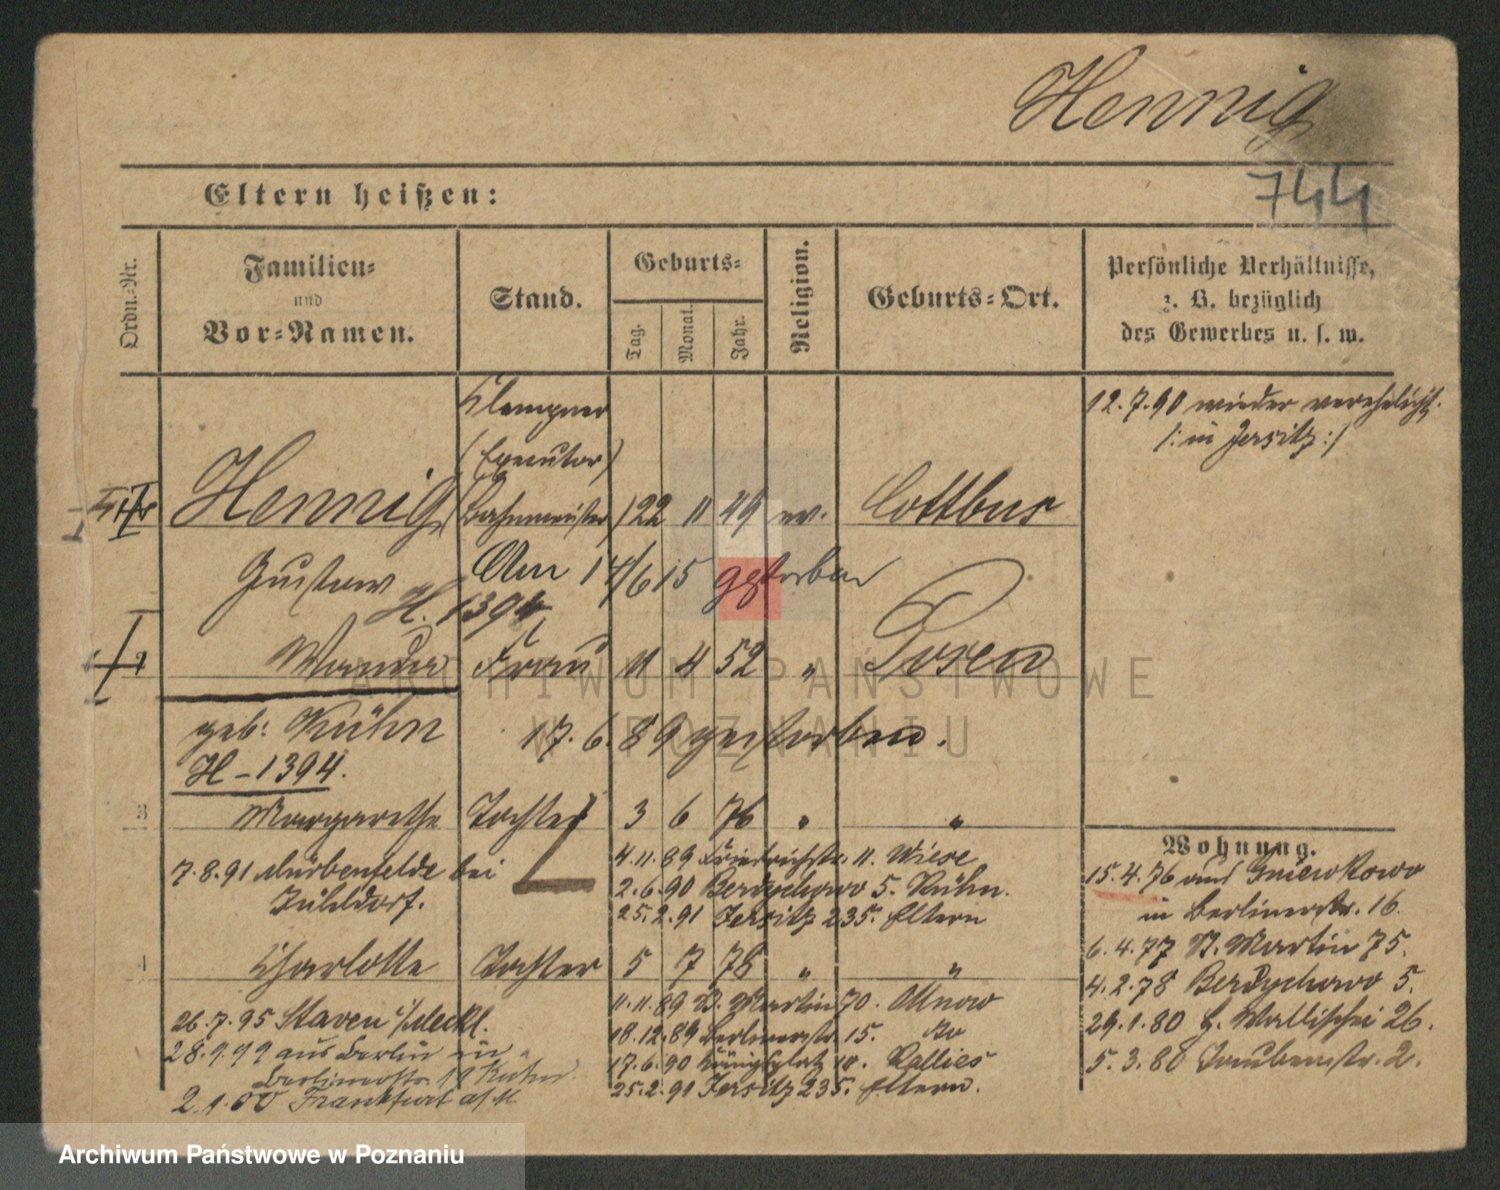 Hennig
744
Eltern heißen:
Ordn.-Nr.
Familien-
und
Vor-Namen.
Stand.
Geburts-
Tag.
Monat.
Jahr.
Religion.
Geburts-Ort.
Persönliche Verhältnisse,
z. B. bezüglich
des Gewerbes u. s. w.
Klempner
(Executor)
12.7.90 wieder verehelicht.
/: in Jersitz :/
Hennig Bahnmeister 22 11 49 ev. Cottbus
Gustav Am 17/6 15 gestorben
H. 1394
Wanda Frau 11 4 52 " Posen
geb: Kühn 17.6.89 gestorben.
H-1394.
3 Margarethe Tochter 3 6 76 " "
7.8.91 Mürbenfelde bei
4.11.89 Friedrichstr. 11. Wiese
2.6.90 Berdychowo 5. Kühn.
25.2.91 Jersitz 235. Eltern
4 Charlotte Tochter 5 7 78 " "
26.7.95 Staven i/Meckl.
28.9.99 aus Berlin in
Berlinerstr. 11 Kühn
2.1.00 Frankfurt a/M
11.11.89 St. Martin 70.
18.12.89 Berlinerstr. 15. Do
17.6.90 Königsplatz 10. Callies
25.2.91 Jersitz 235. Eltern.
Wohnung.
15.4.76 aus Gniewkowo
in Berlinerstr. 16.
6.4.77 St. Martin 75.
4.2.78 Berdychowo 5.
29.1.80 Wallischei 26.
5.3.80 Taubenstr. 2.
ARCHIWUM PAŃSTWOWE
W POZNANIU
Archiwum Państwowe w Poznaniu